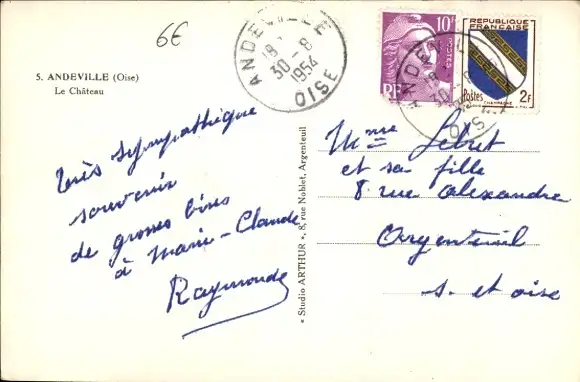 6€
5. ANDEVILLE (Oise)
Le Château
ANDEVILLE
30-8
1954
OISE
10F
POSTES
RF
REPUBLIQUE FRANÇAISE
Postes 2F
CHAMPAGNE
Très sympathique
souvenir
de grosses bises
à Marie-Claude
Raymonde
« Studio ARTHUR », 8, rue Noblet, Argenteuil
Mme Lebret
et sa fille
8 rue Alexandre
Argenteuil
S. et Oise